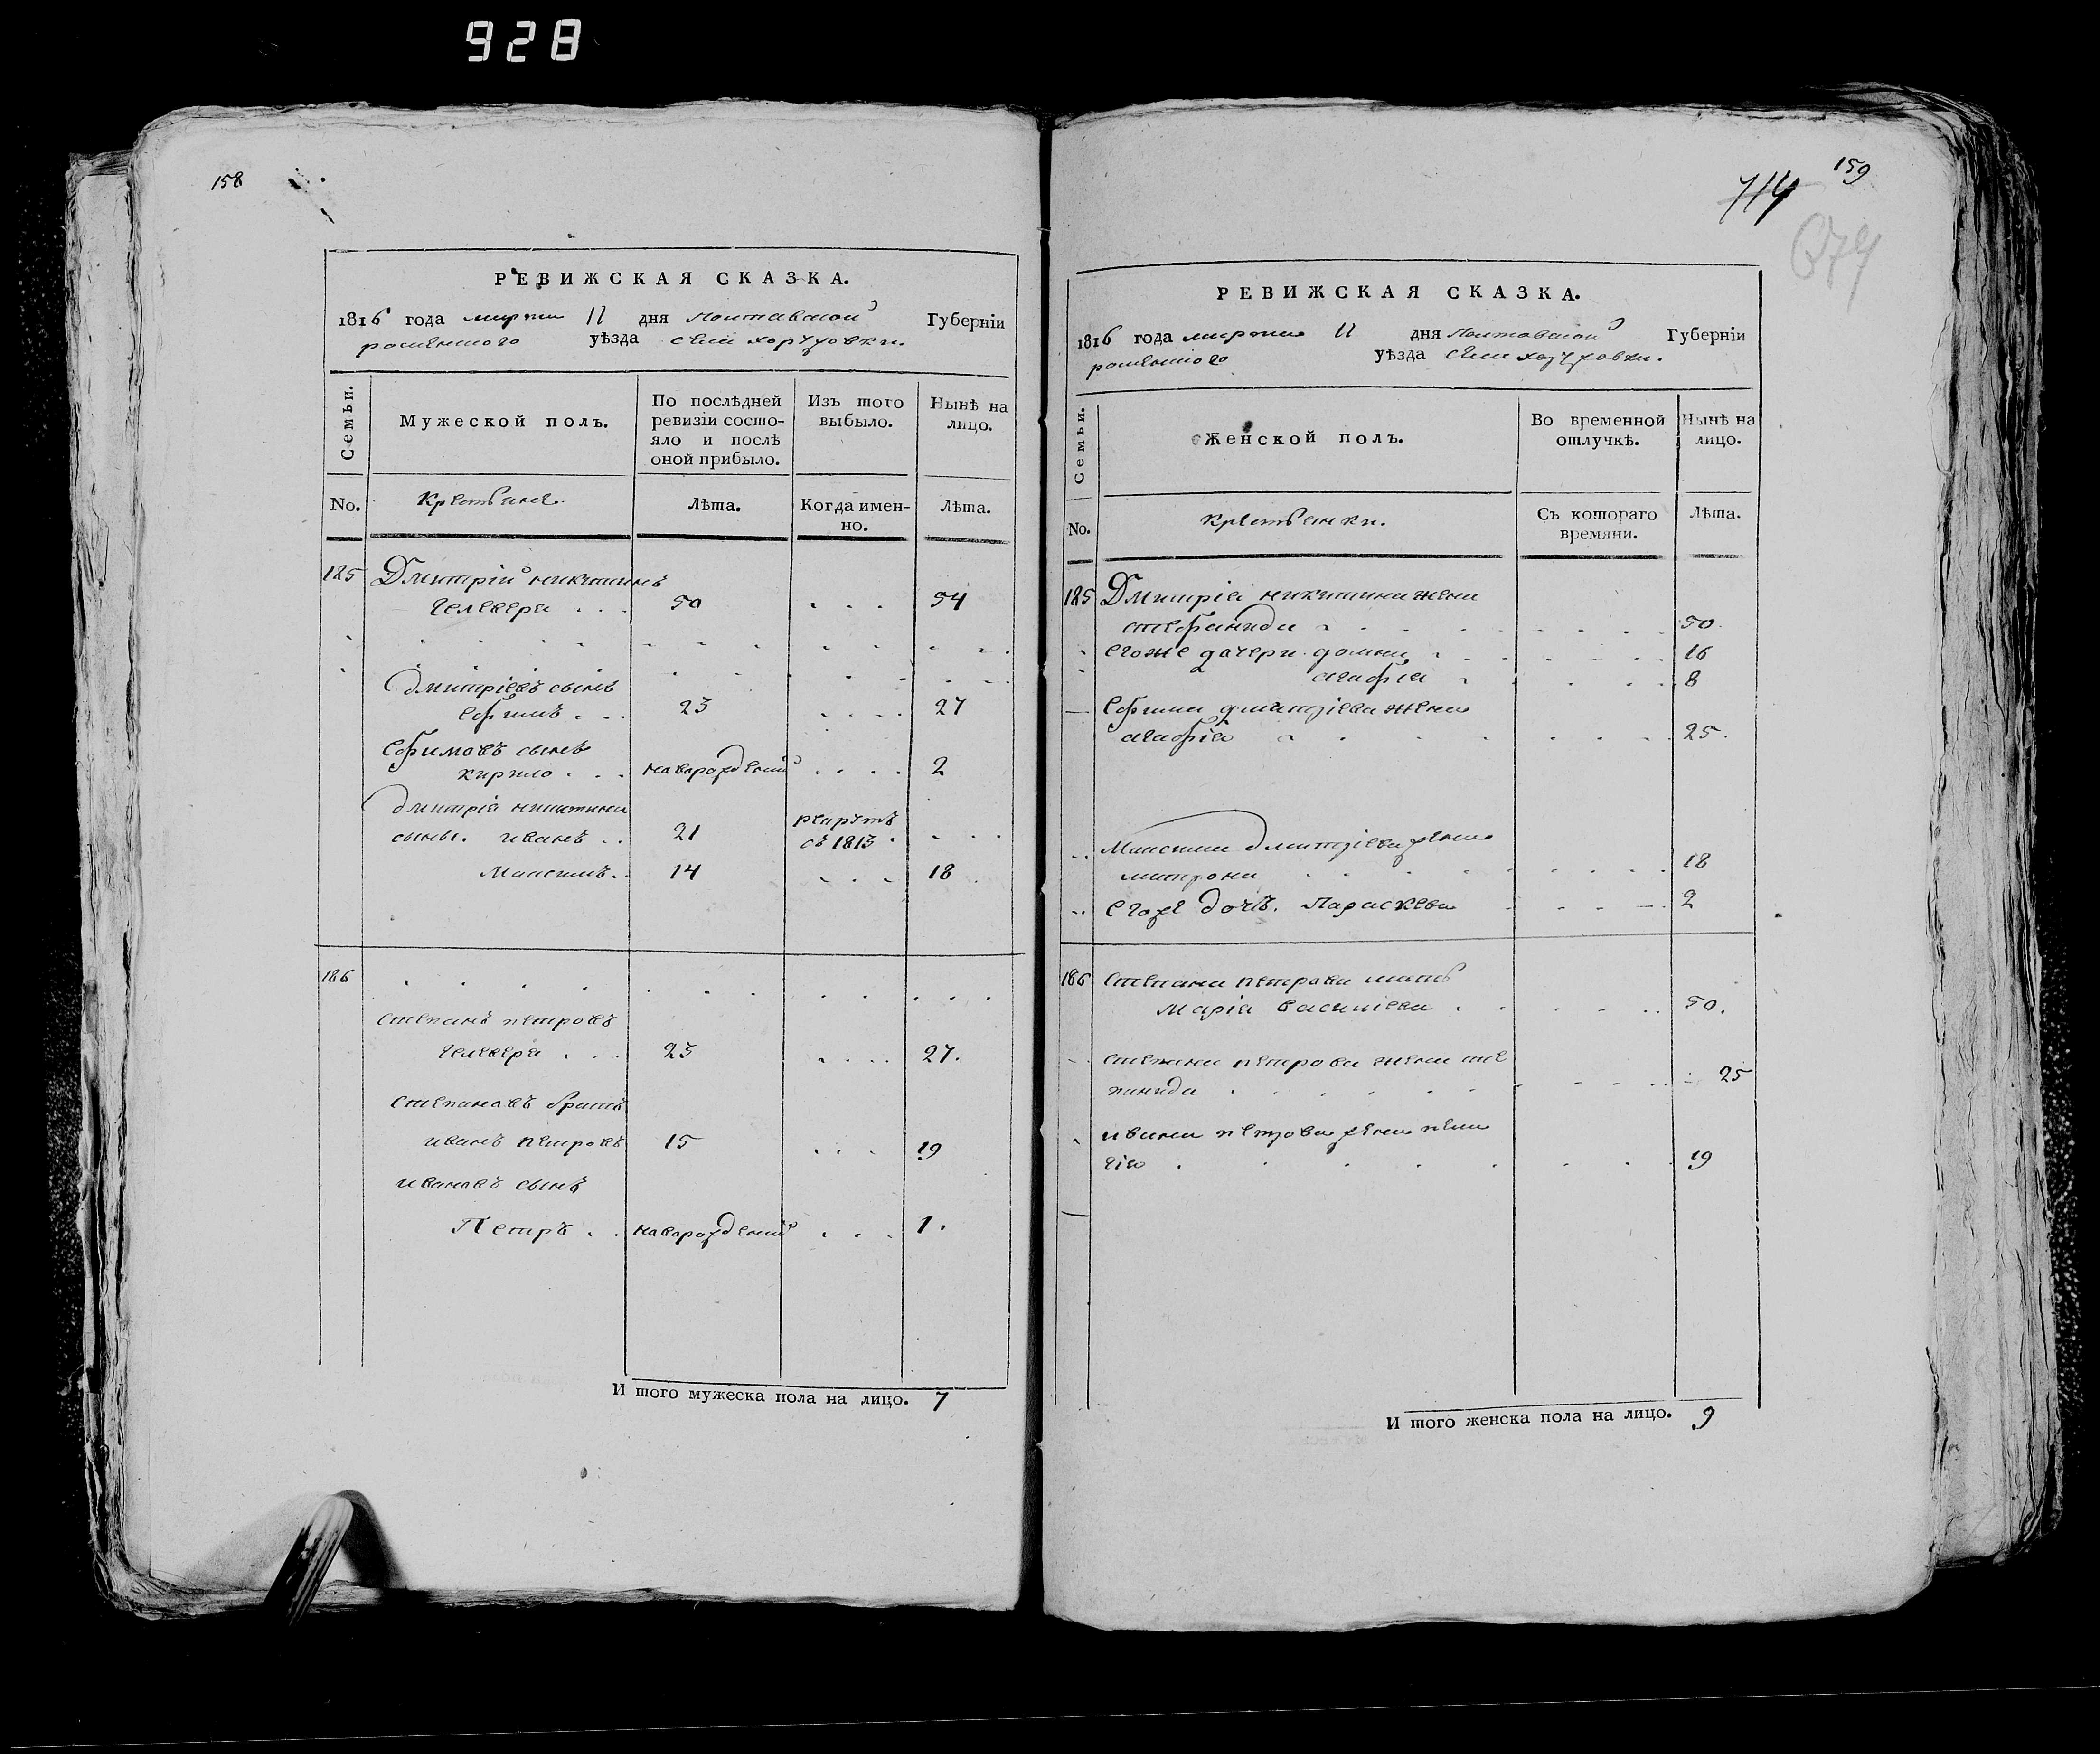 928
158
РЕВИЖСКАЯ СКАЗКА.
1816 года марта 11 дня Полтавской Губерніи
роменского уѣзда села
Семьи.
Мужеской полъ.
По послѣдней ревизіи состо-
яло и послѣ
оной прибыло.
Изъ того
выбыло.
Нынѣ на
лицо.
No.
Крестьяне
Лѣта.
Когда имен-
но.
Лѣта.
185 Дмитрій никитинъ
50 54
Дмитріевъ сынъ
Ефимъ 23 27
Ефимовъ сынъ
кирило новорожденный 2
дмитрія никитина
сыны. иванъ 21 рекрутъ
въ 1813
Максимъ 14 18
186
степанъ петровъ
23 27.
степановъ братъ
иванъ петровъ 15 19
ивановъ сынъ
Петръ новорожденный 1.
И того мужеска пола на лицо. 7
159
714
679
РЕВИЖСКАЯ СКАЗКА.
1816 года марта 11 дня Полтавской Губерніи
роменского уѣзда села
Семьи.
Женской полъ.
Во временной
отлучкѣ.
Нынѣ на
лицо.
No.
крестьянки.
Съ котораго
времяни.
Лѣта.
185 Дмитрія никитина жена
стефанида 50
егоже дочери домна 16
агафія 8
ефима дмитріева жена
агафія 25.
Максима дмитріева жена
матрона 18
егоже дочь. Параскева 2
186 степана петрова мать
Марія василіева 50.
степана петрова жена сте
панида 25
ивана петрова жена пела
гія 19
И того женска пола на лицо. 9